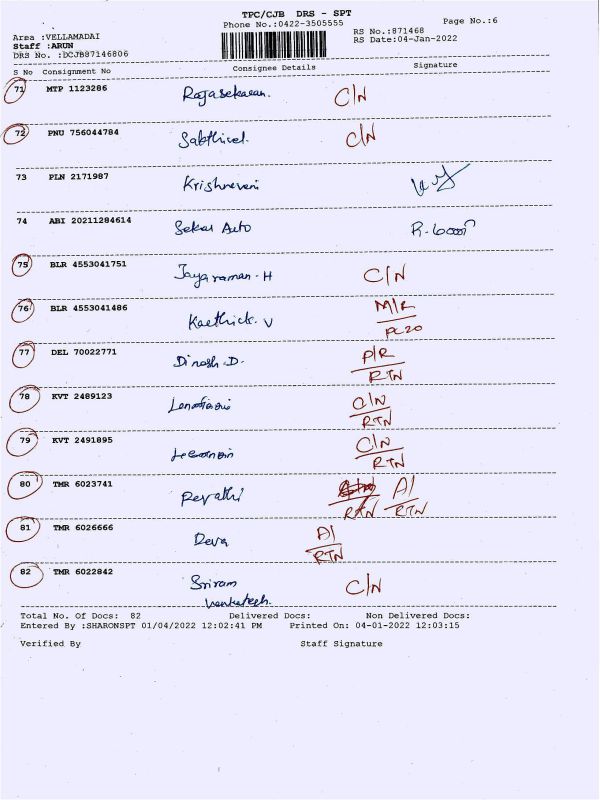 TPC/CJB DRS - SPT
Phone No.:0422-3505555
Page No.:6
Area :VELLAMADAI
RS No.:871468
Staff :ARUN
RS Date:04-Jan-2022
DRS No. :DCJB87146806
S No Consignment No Consignee Details Signature
71 MTP 1123286 Rajasekaran. C/N
72 PNU 756044784 Sakthivel. C/N
73 PLN 2171987 Krishnaveni
74 ABI 20211284614 Sekar Auto
75 BLR 4553041751 Jayaraman-H C/N
76 BLR 4553041486 Karthick. V M/R
PC20
77 DEL 70022771 Dinesh-D. P/R
RTN
78 KVT 2489123 C/N
RTN
79 KVT 2491895 C/N
RTN
80 TMR 6023741 Revathi A/
RTN RTN
81 TMR 6026666 Deva A/
RTN
82 TMR 6022842 Sriram C/N
Venkatesh.
Total No. Of Docs: 82 Delivered Docs: Non Delivered Docs:
Entered By :SHARONSPT 01/04/2022 12:02:41 PM Printed On: 04-01-2022 12:03:15
Verified By Staff Signature